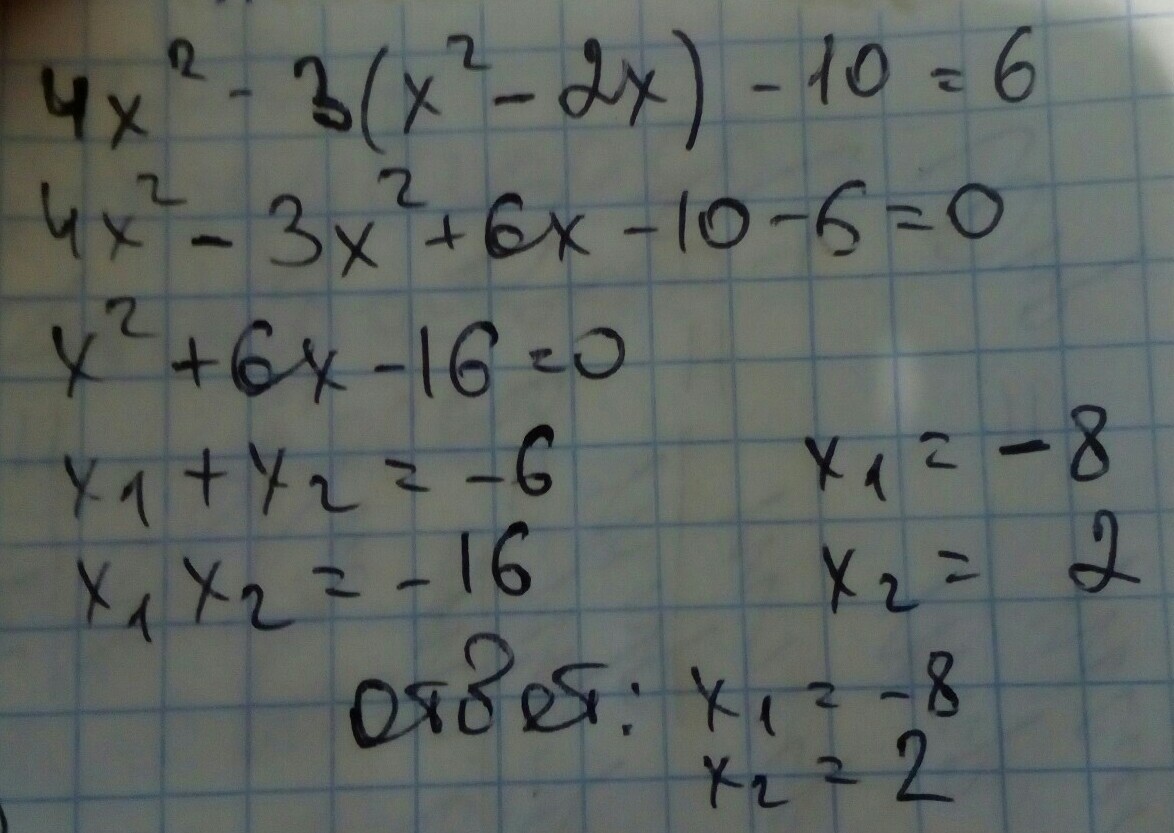 4x² - 3(x² - 2x) - 10 = 6
4x² - 3x² + 6x - 10 - 6 = 0
x² + 6x - 16 = 0
x₁ + x₂ = -6 x₁ = -8
x₁ x₂ = -16 x₂ = 2
ответ: x₁ = -8
x₂ = 2